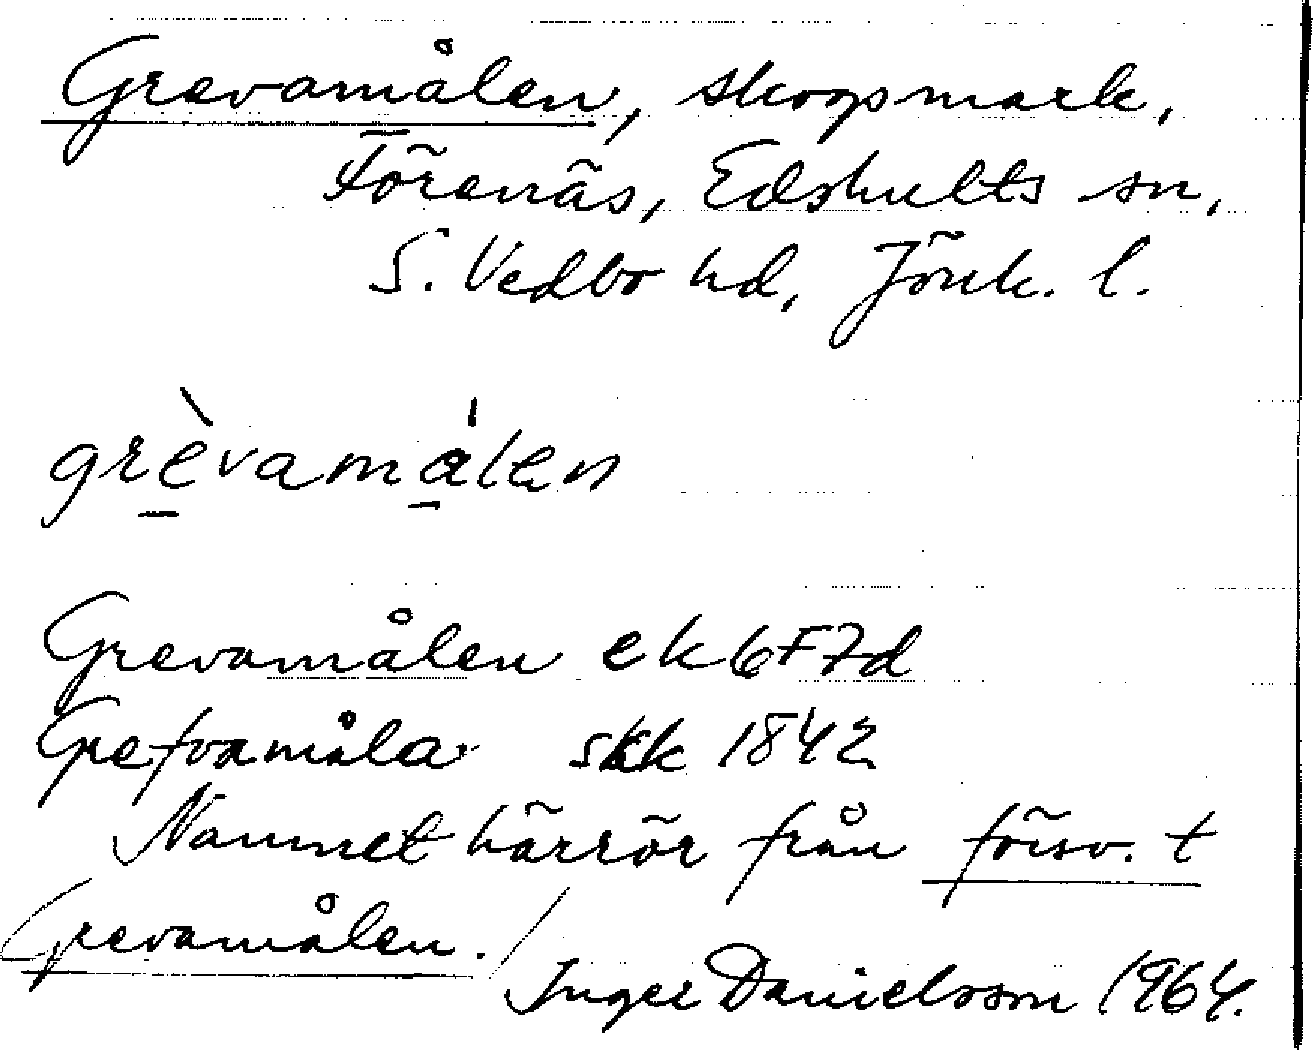 Grevamålen, skogsmark,
Förenäs, Edshults sn,
S. Vedbo hd, Jönk. l.
grèvamálen
Grevamålen ek 6F7d
Grefvamåla skk 1842
Namnet härrör från försv. t
Grevamålen./
Inger Danielsson 1964.